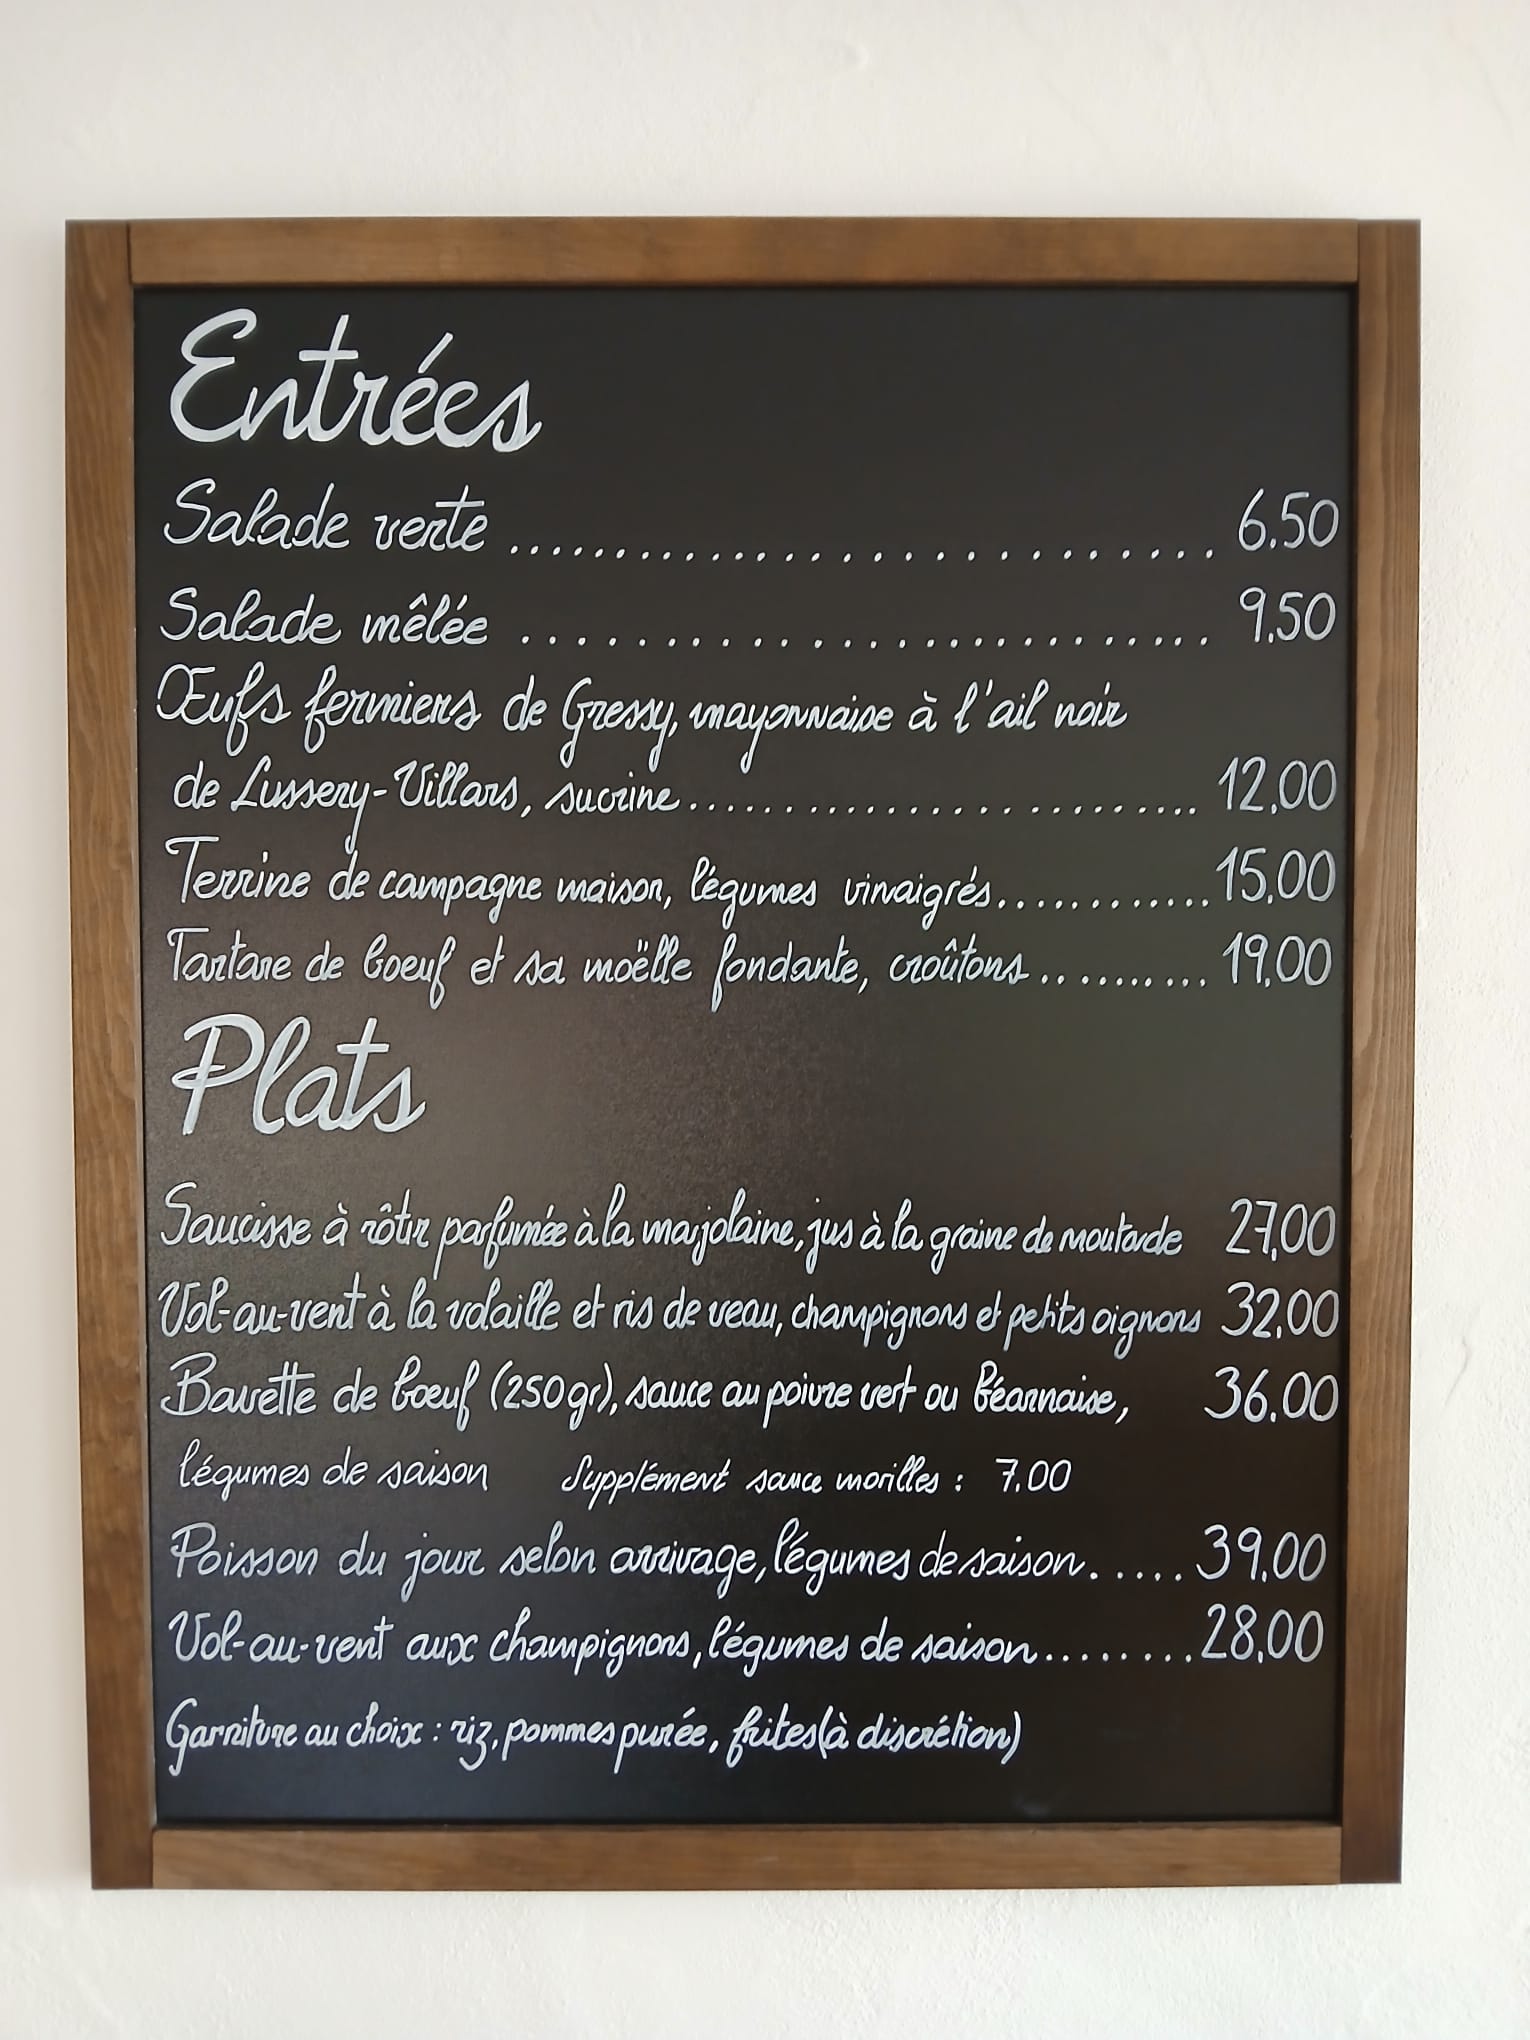 Entrées
Salade verte .............................. 6.50
Salade mêlée .......................... 9.50
Œufs fermiers de Gressy, mayonnaise à l'ail noir
de Lussery-Villars, sucrine......................... 12.00
Terrine de campagne maison, légumes vinaigrés............. 15.00
Tartare de boeuf et sa moëlle fondante, croûtons.......... 19.00
Plats
Saucisse à rôtir parfumée à la marjolaine, jus à la graine de moutarde 27.00
Vol-au-vent à la volaille et ris de veau, champignons et petits oignons 32.00
Bavette de boeuf (250gr), sauce au poivre vert ou béarnaise, 36.00
légumes de saison Supplément sauce morilles : 7.00
Poisson du jour selon arrivage, légumes de saison..... 39.00
Vol-au-vent aux champignons, légumes de saison........ 28.00
Garniture au choix : riz, pommes purée, frites (à discrétion)